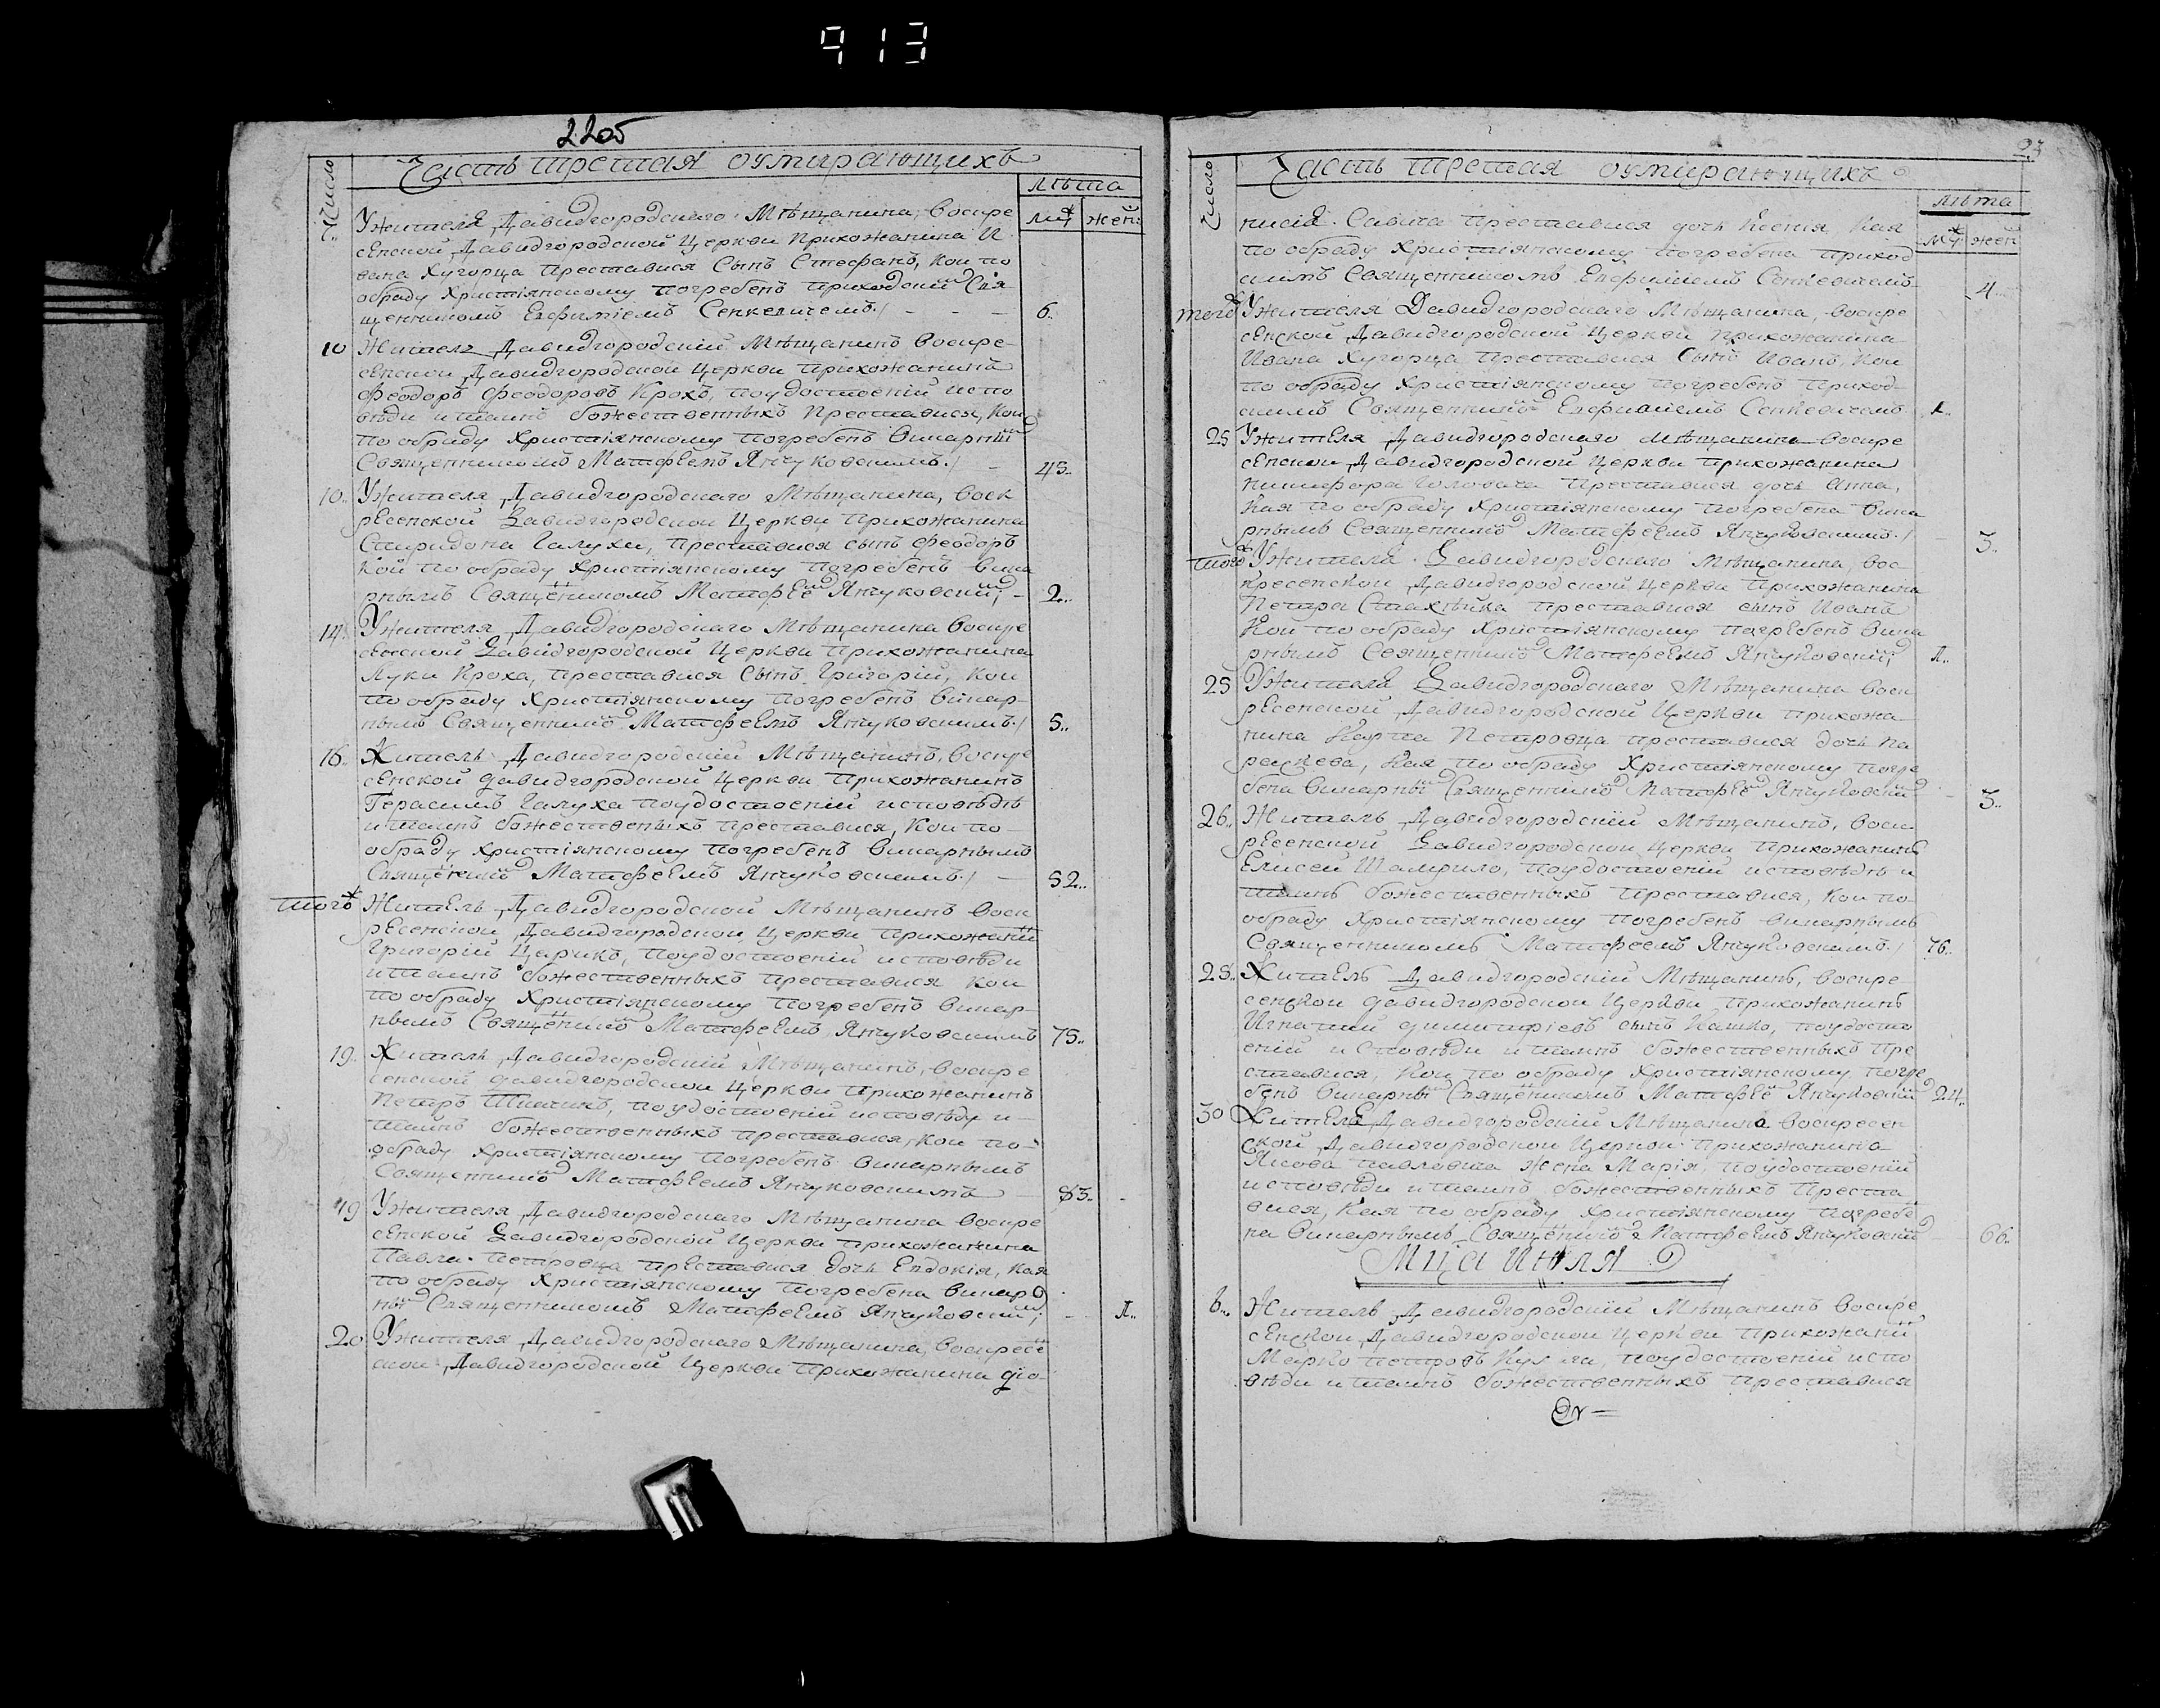 913
2205
Часть третая оумирающихъ
Число
лѣта
му* жен:
Ужителя Давидгородскаго Мѣщанина, Воскре
сенской Давидгородской Церкви Прихожанина И
вана Хугорца преставися Сынъ Стефанъ, кои по
обраду христіянскому погребенъ приходскій Свя
щенникомъ Евфиміемъ Сенкевичемъ./ - - - 6..
10 Житель Давидгородскій Мѣщанинъ Воскре-
сенской Давидгородской Церкви прихожанинъ
Феодоръ Феодоровъ Крохъ, поудостоеніи испо
вѣди итаинъ божественныхъ преставися, кои
по обраду христіянскому погребенъ викарны
Священникомъ Матфеемъ Янчуковскимъ./ - 45..
10.. Ужителя Давидгородскаго Мѣщанина, Воск
ресенской Давидгородской Церкви прихожанина
Спиридона Галухи, преставися сынъ Феодоръ
кой по обраду христіянскому погребенъ вика
рнымъ Священикомъ Матфее Янчуковскій, - 2..
14.. Ужителя Давидгородскаго Мѣщанина Воскре
сенской Давидгородской Церкви прихожанина
Луки Кроха, преставися Сынъ Григорій, кои
по обраду христіянскому погребенъ викар-
нымъ Священнико Матфеемъ Янчуковскимъ./ 5..
16.. Житель Давидгородскій Мѣщанинъ, Воскре
сенской давидгородской Церкви прихожанинъ
Герасимъ Галуха поудостоеніи исповѣдъ
итаинъ божественыхъ преставися, кои по-
обраду христіянскому погребенъ викарнымъ
Священико Матфеемъ Янчуковскимъ./ - 52..
того* Житель Давидгородской Мѣщанинъ Воск
ресенской Давидгородской Церкви прихожани
Григорій Царикъ, поудостоеніи исповѣди
итаинъ божественныхъ преставися кои
по обраду христіянскому погребенъ викар-
нымъ Священико Матфеемъ Янчуковскимъ 75..
19.. Житель Давидгородскій Мѣщанинъ, Воскре
сенской давидгородской Церкви прихожанинъ
Петръ поудостоеніи исповѣди и-
таинъ божественныхъ преставися, кои по-
обраду христіянскому погребенъ викарнымъ
Священнико Матфеемъ Янчуковскимъ - 83..
19 Ужителя Давидгородскаго Мѣщанина Воскре
сенской Давидгородской Церкви прихожанина
Павла Петровца преставися дочь Евдокія, кая
по обраду христіянскому погребена викар
ны Священникомъ Матфеемъ Янчуковскій, - 1..
20 Ужителя Давидгородскаго Мѣщанина, Воскресе
ской Давидгородской Церкви прихожанина дio-
23
Часть третая оумирающихъ
Число
лѣта
му* жен
нисія Савича преставися дочь Ксенія, кая
по обраду христіянскому погребена приход
скимъ Священникомъ Евфиміемъ Сенкевичемъ 4..
того* Ужителя Давидгородскаго Мѣщанина, Воскре
сенской Давидгородской Церкви прихожанина
Ивана Хугорца преставися Сынъ Иванъ, кои
по обраду христіянскому погребенъ приход-
скимъ Священнико Евфиміемъ Сенкевичемъ 1..
25 Ужителя Давидгородскаго Мѣщанина Воскре
сенской Давидгородской Церкви прихожанина
Никифора Головача преставися дочь Анна,
кая по обраду христіянскому погребена вика
рнымъ Священнико Матфеемъ Янчуковскимъ./ - 3..
того* Ужителя Давидгородскаго Мѣщанина, Вос-
кресенской Давидгородской Церкви Прихожанина
Петра преставися сынъ Иванъ
кои по обраду христіянскому погребенъ вика
рнымъ Священнико Матфеемъ Янчуковскій, 1..
25 Ужителя Давидгородскаго Мѣщанина Воск
ресенской Давидгородской Церкви прихожа-
нина Карпа Петровца преставися дочь Па
раскева, кая по обраду христіянскому погре
бена викарны Священнико Матфее Янчуковскій - 3..
26.. Житель Давидгородскій Мѣщанинъ, Воск
ресенской Давидгородской Церкви прихожанинъ
Елисей Шамрило, поудостоеніи исповѣдъ и
таинъ божественныхъ преставися, кои по-
обраду христіянскому погребенъ викарнымъ
Священникомъ Матфеемъ Янчуковскимъ./ 76..
28.. Житель Давидгородскій Мѣщанинъ, Воскре
сенской давидгородской Церкви прихожанинъ
Игнатий димитріевъ сынъ Кашко, поудосто
еніи исповѣди итаинъ божественныхъ пре
ставися, кои по обраду христіянскому погре
бенъ викарны Священикомъ Матфее Янчуковскій 24..
30 Жителя Давидгородскій Мѣщанина Воскресен
ской Давидгородской Церкви прихожанина
Якова Павловича жена Марія, поудостоеніи
исповѣди итаинъ божественныхъ преста
вися, кая по обраду христіянскому погребе
на викарнымъ Священико Матфеемъ Янчуковскій 66..
Мца Июля
6.. Житель Давидгородскій Мѣщанинъ Воскре
сенской Давидгородской Церкви прихожани
Марко Петровъ поудостоеніи испо
вѣди итаинъ божественныхъ преставися